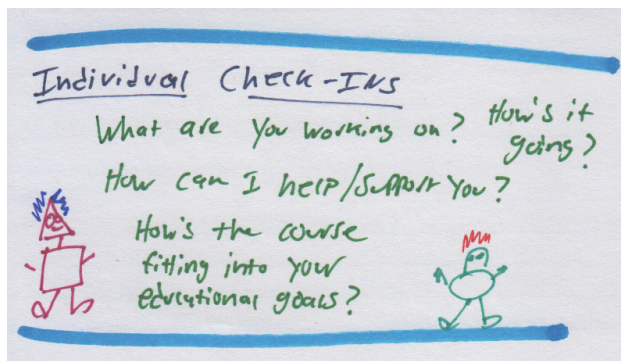 Individual Check-Ins
What are you working on? How's it going?
How can I help/support you?
How's the course
fitting into your
educational goals?